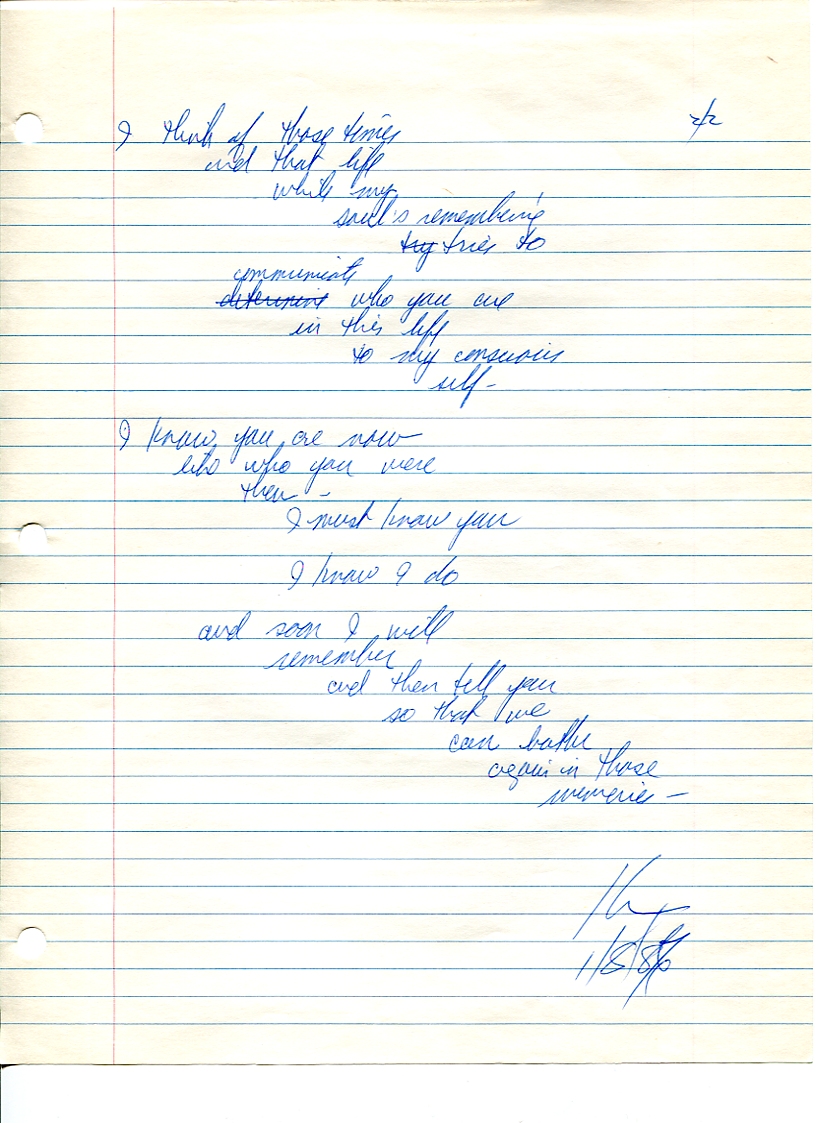 2/2
I think of those times
and that life
while my
soul's remembering
try tries to
communicate
determine who you are
in this life
to my conscious
self-
I know you are now
who you were
then -
I must know you
I know I do
and soon I will
remember
and then tell you
so that we
can bathe
again in those
memories -